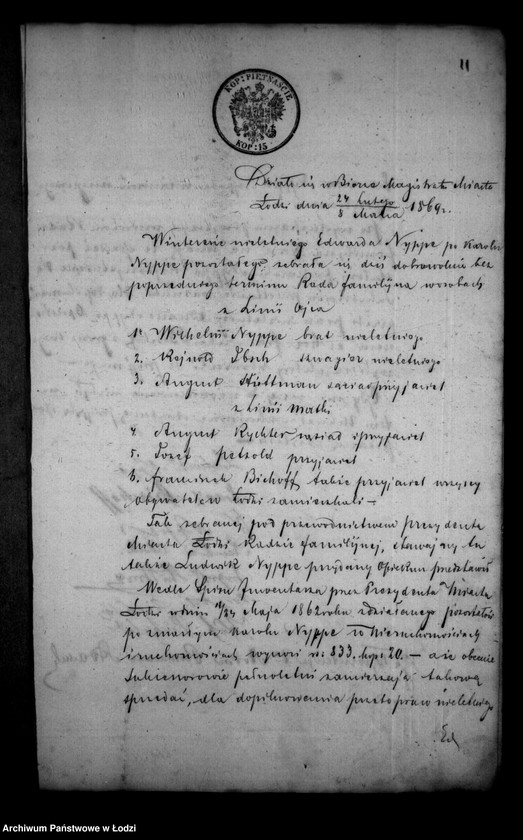 11
KOP: PIĘTNAŚCIE
KOP: 15
Działo się w Biórze Magistratu Miasta
Łodzi dnia 24 Lutego / 8 Marca 1869 r.
W interesie nieletniego Edwarda Nyppe po Karolu
Nyppe pozostałego zebrała się dziś dobrowolnie bez
poprzedniego terminu Rada familijna w osobach
z Linii Ojca
1. Wilhelm Nyppe brat nieletniego
2. Rejnold szwagier nieletniego
3. August Hüttman sąsiad przyjaciel
z Linii Matki
4. August Rychter sąsiad i przyjaciel
5. Jozef Petzold przyjaciel
6. Franciszek Bichoff także przyjaciel wszyscy
obywatele w Łodzi zamieszkali –
Tak zebranej pod przewodnictwem Prezydenta
Miasta Łodzi Radzie familijnej, stawający tu
także Ludwik Nyppe przydany Opiekun przedstawił
Wedle Spisu Inwentarza przez Prezydenta Miasta
Łodzi w dniu Maja 1862 roku zdziałanego pozostałość
po zmarłym Karolu Nyppe w Nieruchomościach
i ruchomościach wynosi rs. 833. kop. 20. – a że obecnie
Sukcesorowie pełnoletni zamierzają takową
sprzedać, dla dopilnowania przeto praw nieletniego
Ed
Archiwum Państwowe w Łodzi